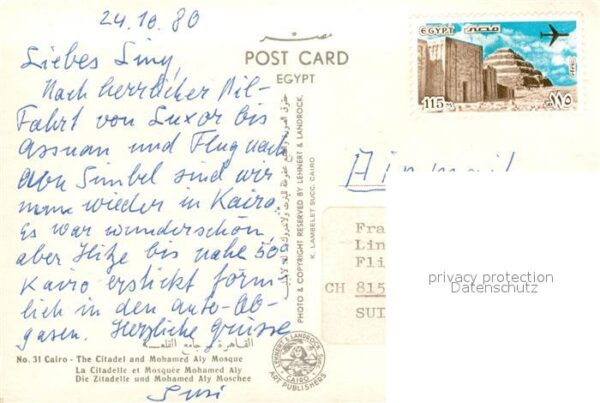 24.10.80
Liebes Liny,
Nach herrlicher Nil-
Fahrt von Luxor bis
Assuan und Flug nach
Abu Simbel sind wir
nun wieder in Kairo.
Es war wunderschön,
aber Hitze bis nahe 50°
Kairo erstickt förm-
lich in den Auto-Ab-
gasen. Herzliche Grüsse
Susi
مصر
POST CARD
EGYPT
EGYPT
مصر
115 M
١١٥
Airmail
PHOTO & COPYRIGHT RESERVED BY LEHNERT & LANDROCK.
K. LAMBELET SUCC. CAIRO
Fra
Lin
Fli
CH 815
SUI
privacy protection
Datenschutz
القاهرة - جامع القلعة
No. 31 Cairo - The Citadel and Mohamed Aly Mosque
La Citadelle et Mosquée Mohamed Aly
Die Zitadelle und Mohamed Aly Moschee
LEHNERT & LANDROCK
CAIRO
ART PUBLISHERS